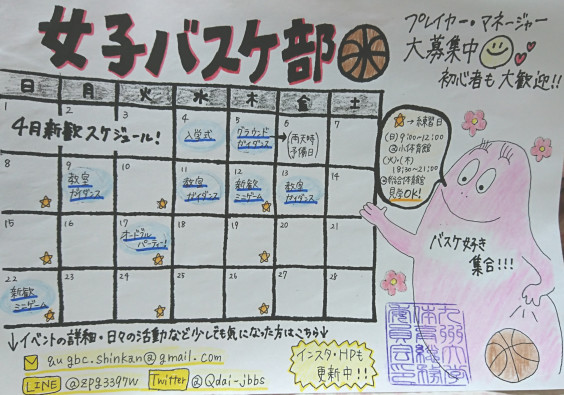 女子バスケ部
プレイヤー・マネージャー
大募集中
初心者も大歓迎!!
日 月 火 水 木 金 土
1 2 3 4 5 6 7
4月新歓スケジュール!
入学式
グラウンド
ガイダンス
(雨天時
予備日)
8 9 10 11 12 13 14
教室
ガイダンス
教室
ガイダンス
新歓
ミニゲーム
教室
ガイダンス
15 16 17 18 19 20 21
オードブル
パーティー!
22 23 24 25 26 27 28
新歓
ミニゲーム
→練習日
(日) 9:00~12:00
@小体育館
(火)・(木)
18:30~21:00
@総合体育館
見学OK!
バスケ好き
集合!!!
↓イベントの詳細・日々の活動など少しでも気になった方はこちら↓
qugbc.shinkan@gmail.com
LINE @zpg3397w Twitter @Qdai-jbbs
インスタ・HPも
更新中!!